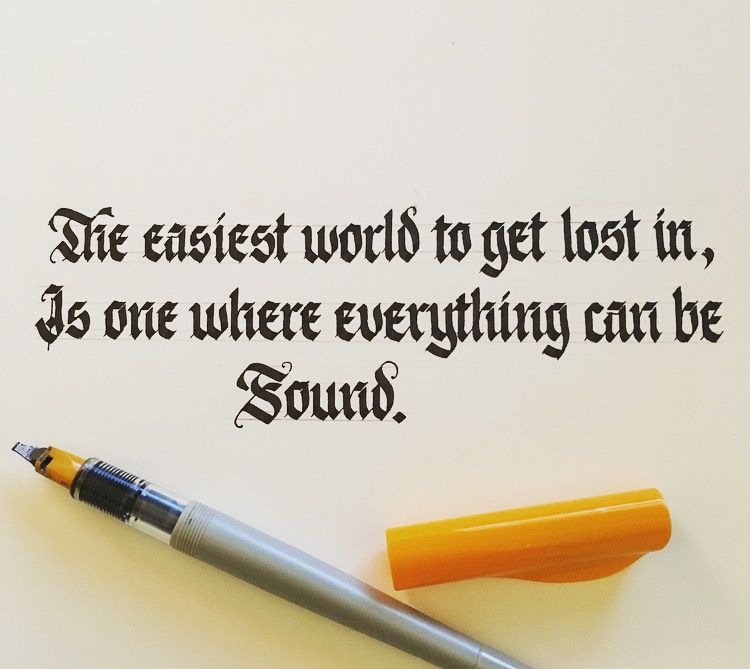 The easiest world to get lost in,
Is one where everything can be
Found.